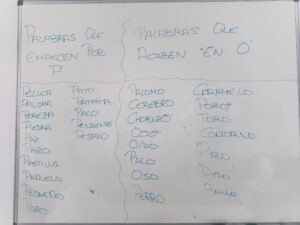 PALABRAS QUE
EMPIECEN POR
"P"
PELUCA
PALOMA
PEREZA
PIEDRA
PAZ
PAZO
PASTILLA
PAÑUELO
PEQUEÑO
POZO
PATO
PATATA
PALO
PENDIENTE
PESADO
PALABRAS QUE
ACABEN EN "O"
PALOMO
CEREBRO
CHORIZO
OJO
OIDO
PALO
OSO
PERRO
CARAMELO
POZO
TORO
CONTORNO
PELO
DEDO
ANILLO